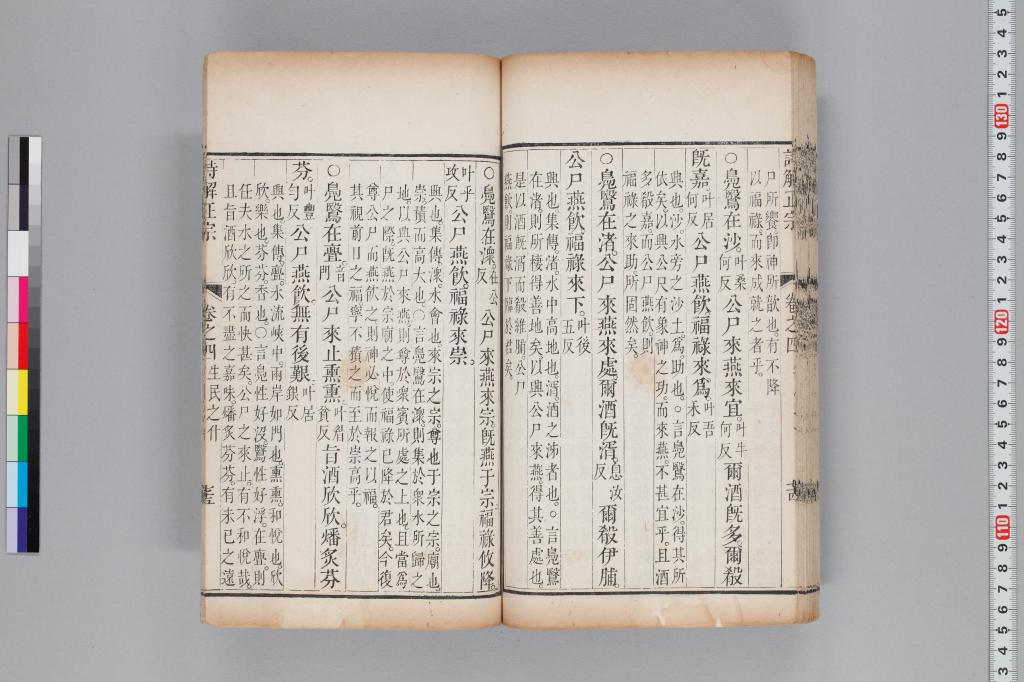 尸所饗卽神所歆也有不降
以福祿而來成就之者乎
○鳧鷖在沙叶桑何反公尸來燕來宜叶牛何反爾酒旣多爾殽
旣嘉叶居何反公尸燕飲福祿來爲叶吾禾反
興也沙水旁之沙土爲助也○言鳧鷖在沙得其所
依矣以興公尸有象神之功而來燕不甚宜乎且酒
多殽嘉而公尸燕飲則
福祿之來助所固然矣
○鳧鷖在渚公尸來燕來處爾酒旣湑息汝反爾殽伊脯
公尸燕飲福祿來下叶後五反
興也集傳渚水中高地也湑酒之泲者也○言鳧鷖
在渚則所棲得善地矣以興公尸來燕得其善處也
是以酒旣湑而殽維脯公尸
燕飲則福祿下臨於君矣
○鳧鷖在潀在公反公尸來燕來宗旣燕于宗福祿攸降
叶乎攻反公尸燕飲福祿來崇
興也集傳潀水會也來宗之宗尊也于宗之宗廟也
崇積而高大也○言鳧鷖在潀則集於衆水所歸之
地以興公尸來燕則尊於衆賓所處之上也且當爲
尸之際旣燕於宗廟之中使福祿已降於君矣今復
尊公尸而燕飲之則神必悅而報之以福
其視前日之福寧不積之而至於崇高乎
○鳧鷖在亹音門公尸來止熏熏叶眉貧反旨酒欣欣燔炙芬
芬叶豐勻反公尸燕飲無有後艱叶居銀反
興也集傳亹水流峽中兩岸如門也熏熏和悅也欣
欣樂也芬芬香也○言鳧性好沒鷖性好浮在亹則
任夫水之所之而快甚矣公尸之來止有不和悅哉
且旨酒欣欣有不盡之嘉味燔炙芬芬有未已之遠
詩解正宗 卷之四 生民之什